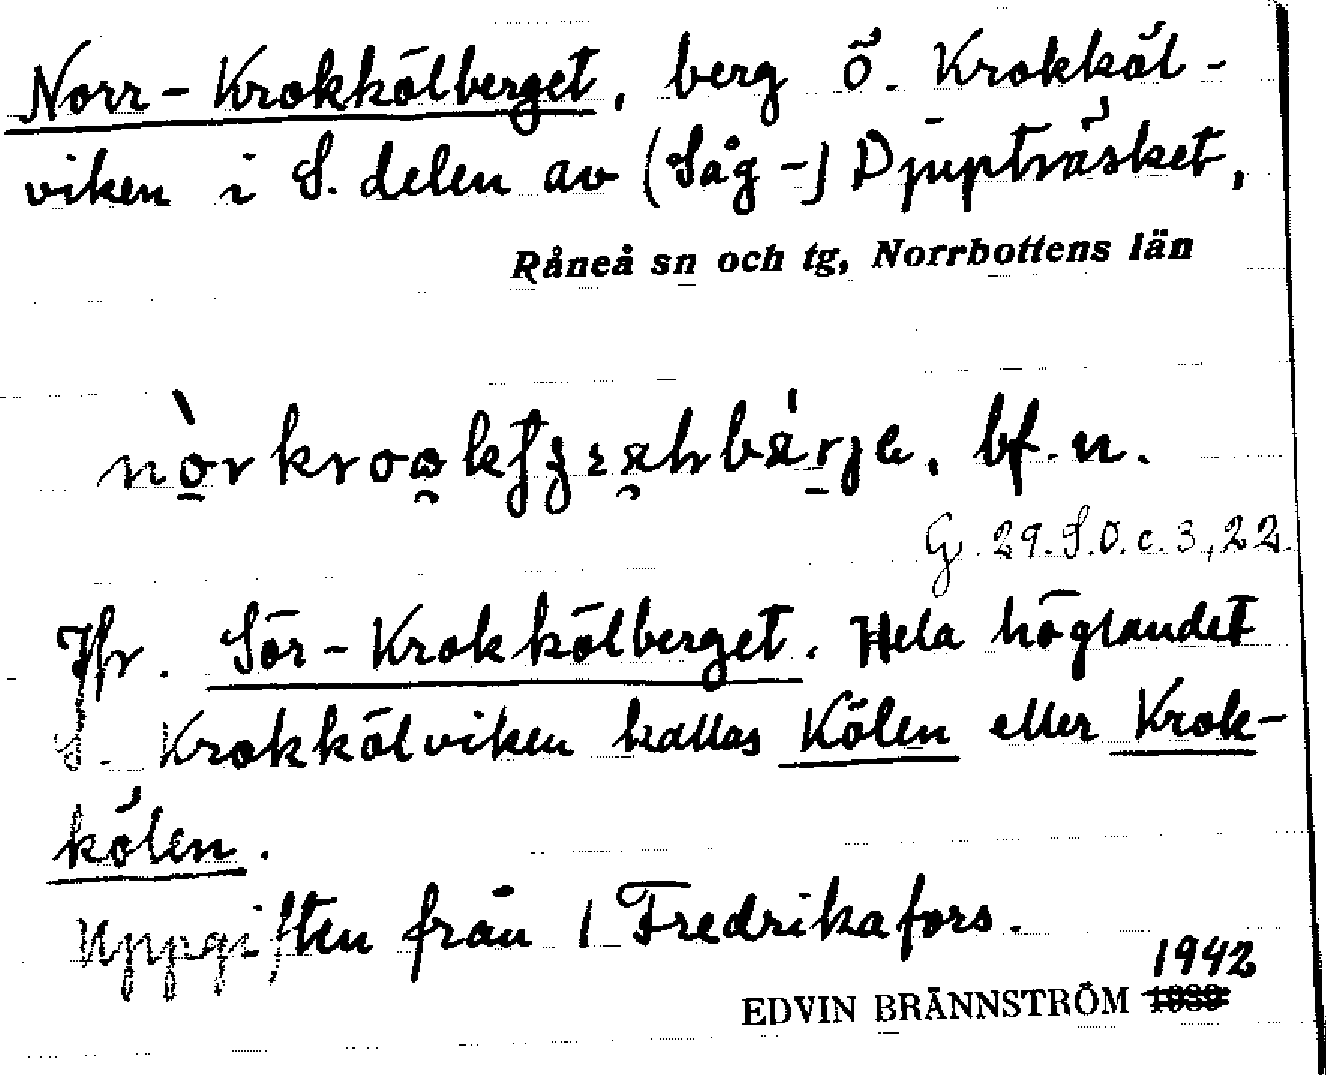 Norr-Krokkölberget, berg Ö. Krokköl-
viken i S. delen av (Såg-) Djupträsket,
Råneå sn och tg, Norrbottens län
bf. n.
G. 29. S.O. c. 3,22.
Jfr. Sör-Krokkölberget. Hela höglandet
S. Krokkölviken kallas Kölen eller Krok-
kölen.
Uppgiften från 1 Fredrikafors.
1942
EDVIN BRÄNNSTRÖM 1939